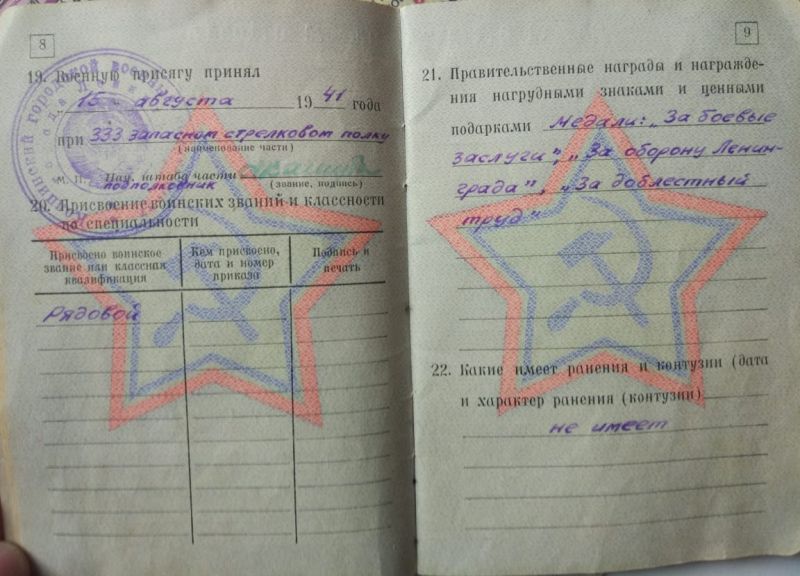 8
19. Военную присягу принял
„ 15 “ августа 1941 года
при 333 запасном стрелковом полку
(наименование части)
м. п. Нач. штаба части
подполковник (звание, подпись)
20. Присвоение воинских званий и классности
по специальности
Присвоено воинское
звание или классная
квалификация
Кем присвоено,
дата и номер
приказа
Подпись и
печать
Рядовой
9
21. Правительственные награды и награжде-
ния нагрудными знаками и ценными
подарками Медали: „За боевые
заслуги", „За оборону Ленин-
града", „За доблестный
труд"
22. Какие имеет ранения и контузии (дата
и характер ранения (контузии)
не имеет